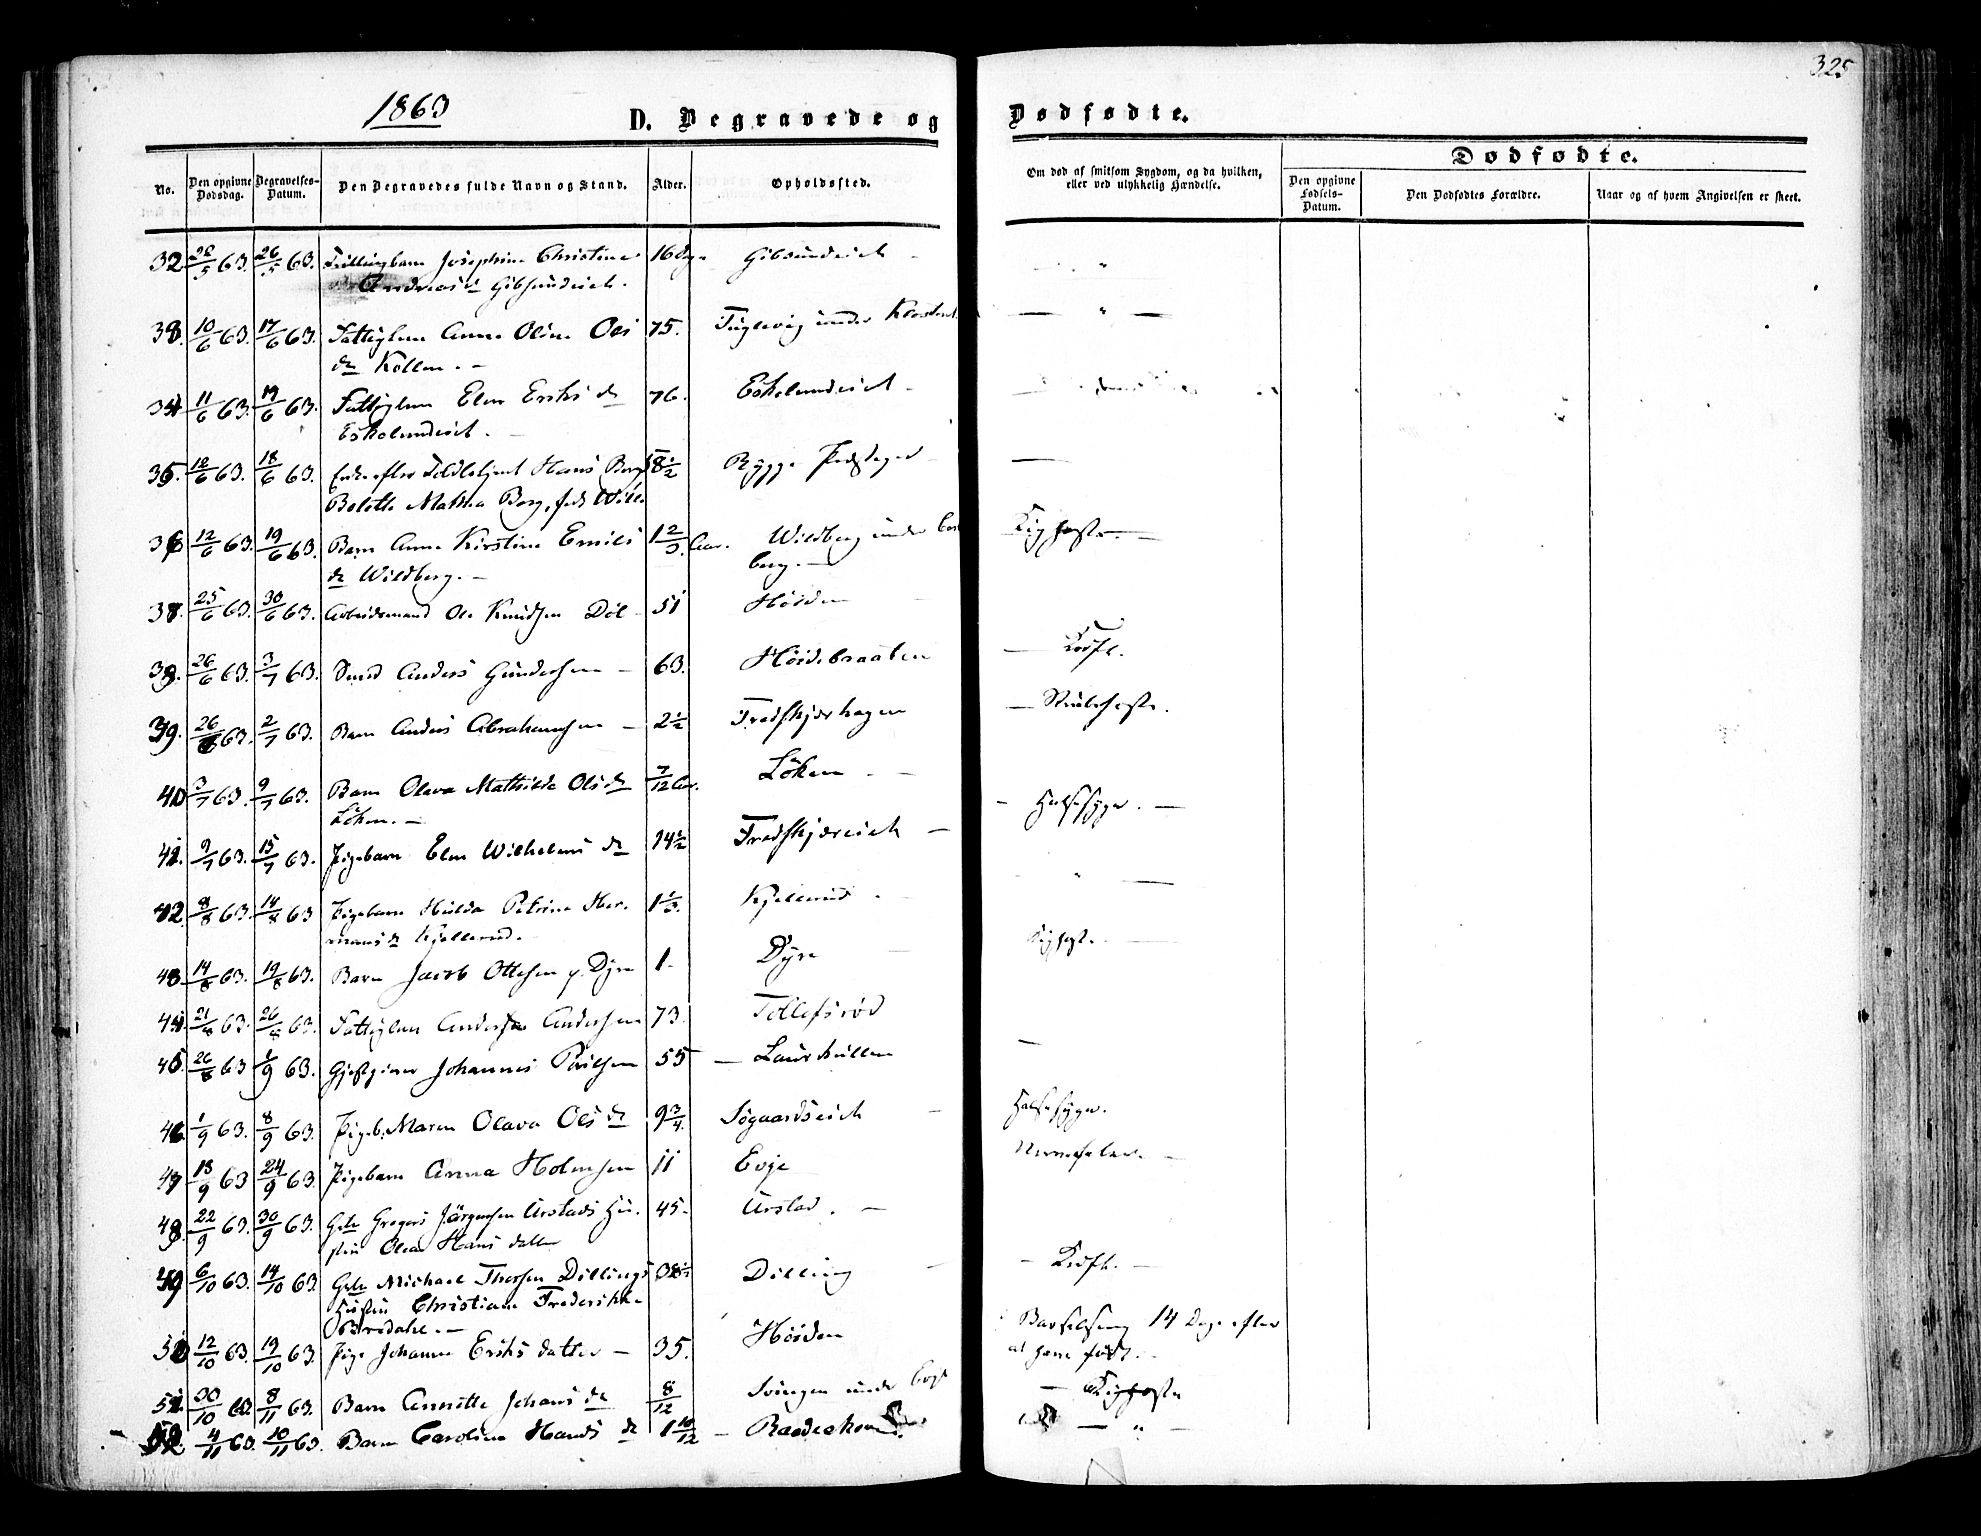 325
1863
D. Begravede og Dødfødte.
No.
Den opgivne Dødsdag.
Begravelses-Datum.
Den Begravedes fulde Navn og Stand.
Alder.
Opholdssted.
Om død af smitsom Sygdom, og da hvilken, eller ved ulykkelig Hændelse.
Dødfødte.
Den opgivne Fødsels-Datum.
Den Dødfødtes Forældre.
Naar og af hvem Angivelsen er skeet.
32 26/5 63. 26/5 63. Josephine Christine 16 Dage
Andreasd
33. 10/6 63. 17/6 63. Fattiglem Anne Oline Ols 75. Fuglevig under
dr Kollen. —
34 11/6 63. 19/6 63. Fattiglem Elen Eriks dr 76. Eskelundeiet —
Eskelundeiet. —
35. 12/6 63. 18/6 63. Hans Berg Rygge Præstegd —
Bolette Mathea Berg, fød Wille
36 12/6 63. 19/6 63. Barn Anne Kirstine Emils 1 2/3 Aar. Wildberg under Kighoste —
dr Wildberg. — berg. —
25/6 63. 30/6 63. Arbeidsmand Ole Knudsen Døl — 51 Høiden
26/6 63. 3/7 63. Smed Anders Gundersen — 63. Høidebraaten — Kræft.
39. 26/6 63. 2/7 63. Barn Anders Abrahamsen — 2½ Fredskjærhagen — Strubehoste.
40 3/7 63. 9/7 63. Barn Olava Mathilde Olsdr 7/12 Aar. Løken —
Løken. — Halssyge. —
9/7 63. 15/7 63. Pigebarn Elen Wilhelms dr 14½ Fredskjæreiet —
42. 8/8 63. 14/8 63 Pigebarn Hulda Petrine Her- 1⅓. Kjellerød
mansdr Kjellerød. Kighoste. —
43. 14/8 63. 19/8 63. Barn Jacob Ottesen p. Dyre 1. Dyre
44. 21/8 63. 26/8 63. Fattiglem Anders Andersen 73. Tollefsrød
45. 26/8 63 1/9 63. Gjestgiver Johannes Poulsen 55 — Laurkullen
46. 1/9 63. 8/9 63. Pigeb. Maren Olava Ols dr 9¾ Søgaardseiet — Halssyge.
47 18/9 63 24/9 63. Pigebarn Anna Holmsen 11 Evje Nervefeber. —
48. 22/9 63. 30/9 63. Gdr Gregers Jørgensen Aarstads Hu- 45. Aarstad. —
stru Olea Hans datter
49 6/10 63. 14/10 63. Gdr Michael Thorsen Dillings 38½ Dilling — Kræft. —
Hustru Christiane Frederikke
50 12/10 63. 19/10 63. Pige Johanne Eriks datter — 35. Høiden Barselseng 14 Dage efter
at have født. —
51. 30/10 63. 8/11 63. Barn Annette Johans dr 8/12 Svingen under Evje — Kighoste
52 4/11 63. 10/11 63. Barn Caroline Hans dr 1 10/12 — — " —